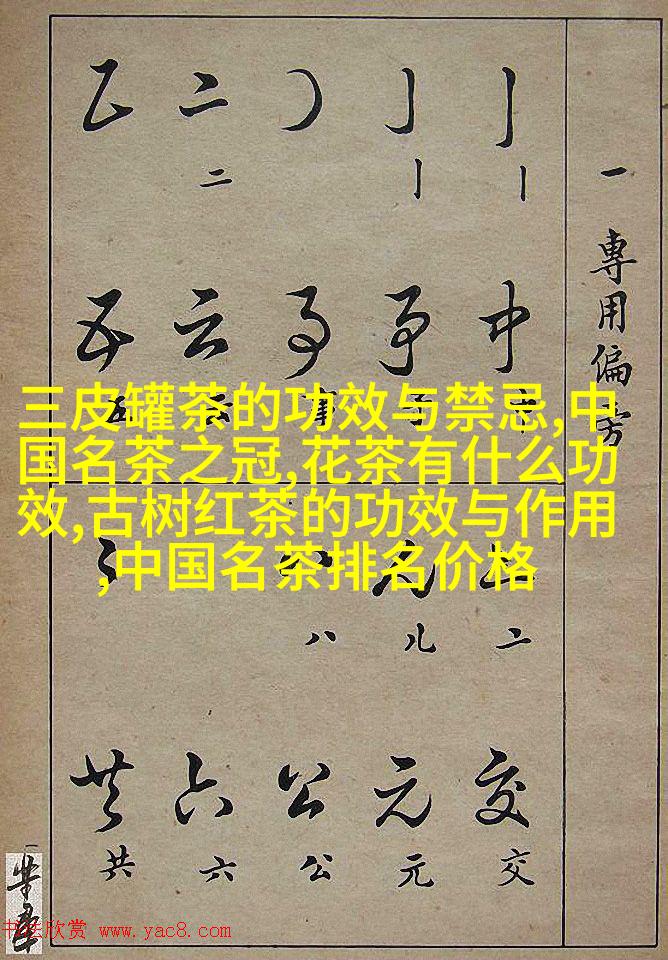 三皮罐茶的功效与禁忌,中
国名茶之冠,花茶有什么功
效,古树红茶的功效与作用
,中国名茶排名价格
一 專用偏旁
二
二
中 事 云 五
事 云 五
儿 八
交 元 公 六 共
交 元 公 六 共
书法欣赏 www.yac8.com